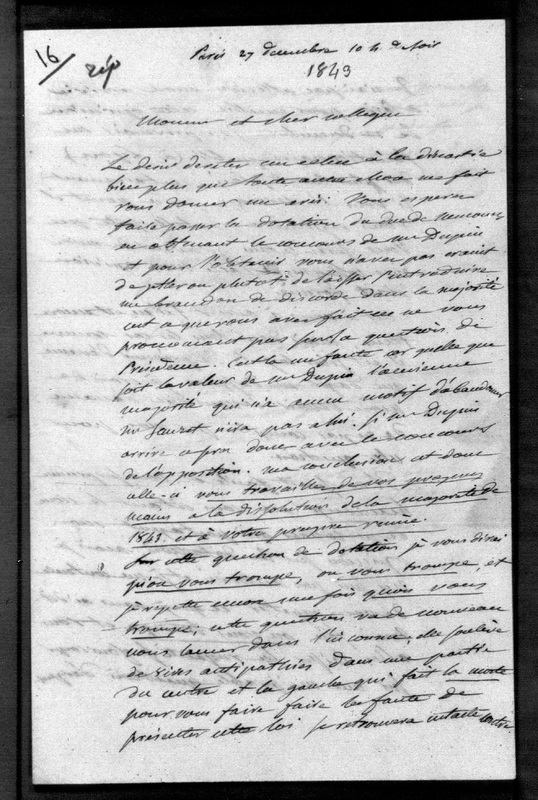 16/ rép
Paris 27 décembre 10 h. du soir
1843
Monsieur et cher collègue
Le désir d'éviter un échec à la dinastie
bien plus que toute autre chose me fait
vous donner un avis. Vous espérez
faire passer la dotation du duc de Nemours
en obtenant le concours de mr Dupin
et pour l'obtenir vous n'avez pas craint
de jetter ou plutot de laisser s'introduire
un brandon de discorde dans la majorité
c'est ce que vous avez fait en ne vous
prononciant pas sur la question de
Présidence. C'est la une faute car quelle que
soit la valeur de mr Dupin l'ancienne
majorité qui n'a aucun motif d'abandonner
mr Sauzet n'ira pas a lui. Si mr Dupin
arrive a donc avec le concours
de l'opposition. ma conclusion est donc
celle-ci vous travaillez de vos propres
mains a la dissolution de la majorité de
1843. et à votre propre ruine.
Sur cette question de dotation je vous dirai
qu'on vous trompe, on vous trompe, et
je répette encore une fois qu'on vous
trompe; cette question va de nouveau
vous lancer dans l'inconnu; elle soulève
de vives antipathies dans une partie
du centre et la gauche qui fait la morte
pour vous faire faire la faute de
présenter cette loi se retrouvera intacte contre